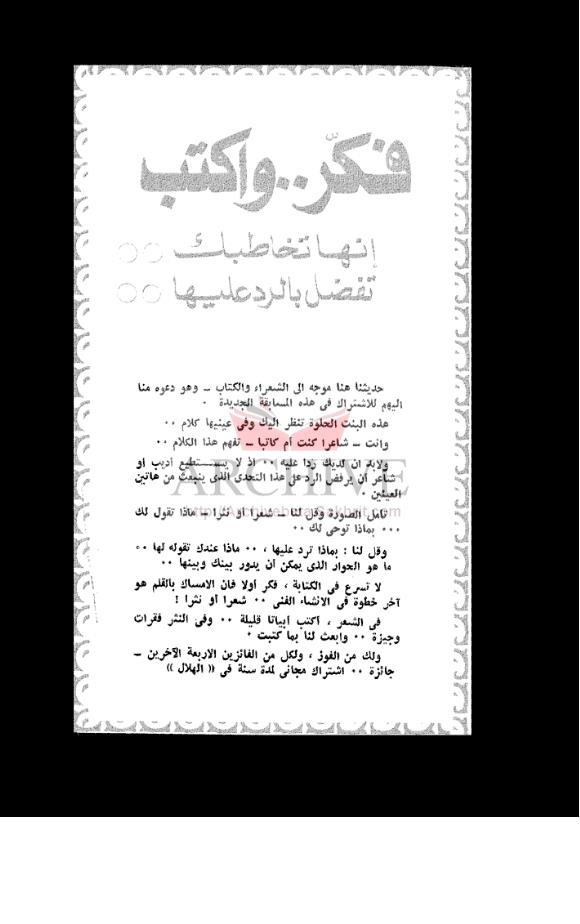 فكّر..واكتب
إنها تخاطبك
تفضل بالرد عليها
حديثنا هنا موجه الى الشعراء والكتاب ــ وهو دعوه منا
اليهم للاشتراك فى هذه المسابقة الجديدة ٠
هذه البنت الحلوة تنظر اليك وفى عينيها كلام ٠٠
وانت ــ شاعرا كنت أم كاتبا ــ تفهم هذا الكلام ٠٠
ولابد ان لديك ردا عليه ٠٠ اذ لا يستطيع أديب او
شاعر أن يرفض الرد على هذا التحدى الذى ينبعث من هاتين
العينين ٠
تأمل الصورة وقل لنا ــ شعرا او نثرا ــ ماذا تقول لك
٠٠٠ بماذا توحى لك ٠٠
وقل لنا : بماذا ترد عليها ، ٠٠ ماذا عندك تقوله لها ٠٠
ما هو الحوار الذى يمكن أن يدور بينك وبينها ٠٠
لا تسرع فى الكتابة ، فكر أولا فان الامساك بالقلم هو
آخر خطوة فى الانشاء الفنى ٠٠ شعرا أو نثرا !
فى الشعر ، اكتب أبياتا قليلة ٠٠ وفى النثر فقرات
وجيزة ٠٠ وابعث لنا بما كتبت ٠
ولك من الفوز ، ولكل من الفائزين الاربعة الآخرين ــ
جائزة ٠٠ اشتراك مجانى لمدة سنة فى « الهلال »
ARCHIVE